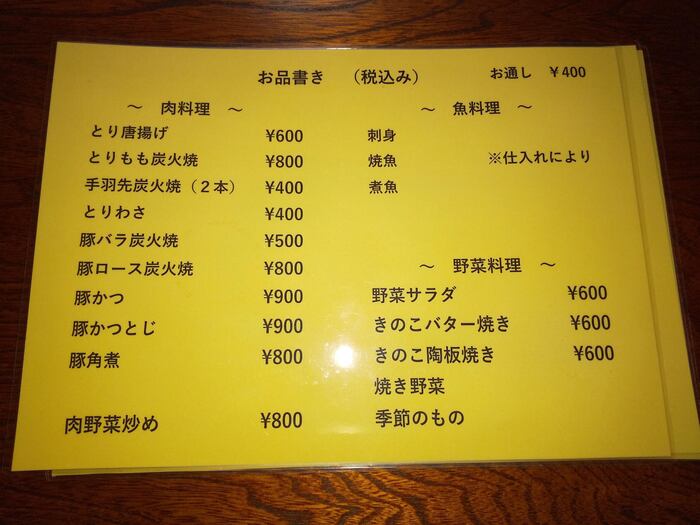 お品書き （税込み） お通し ￥400
～ 肉料理 ～
とり唐揚げ ¥600
とりもも炭火焼 ¥800
手羽先炭火焼（２本） ¥400
とりわさ ¥400
豚バラ炭火焼 ¥500
豚ロース炭火焼 ¥800
豚かつ ¥900
豚かつとじ ¥900
豚角煮 ¥800
肉野菜炒め ¥800
～ 魚料理 ～
刺身
焼魚 ※仕入れにより
煮魚
～ 野菜料理 ～
野菜サラダ ¥600
きのこバター焼き ¥600
きのこ陶板焼き ¥600
焼き野菜
季節のもの